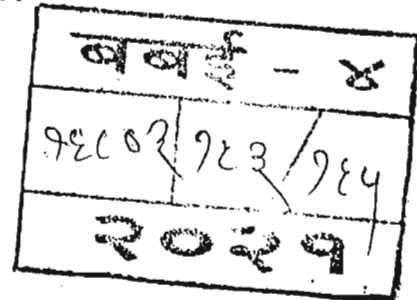 बबई - ४
१६८०२ १६३ / १६५
२०२१